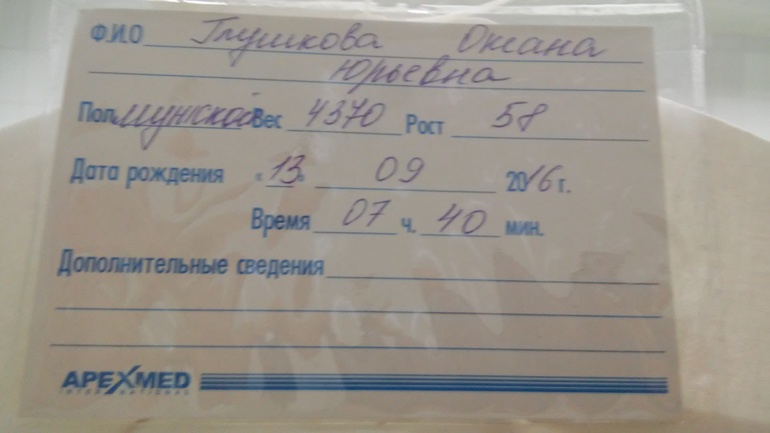 Ф.И.О Глушкова Оксана
Юрьевна
Пол мужской Вес 4370 Рост 58
Дата рождения «13» 09 2016 г.
Время 07 ч. 40 мин.
Дополнительные сведения
APEXMED
INTERNATIONAL